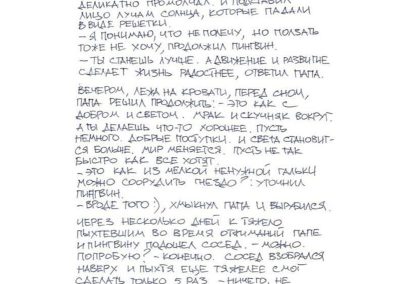 ДЕЛИКАТНО ПРОМОЛЧАЛ. И ПОДСТАВИЛ
ЛИЦО ЛУЧАМ СОЛНЦА, КОТОРЫЕ ПАДАЛИ
В ВИДЕ РЕШЕТКИ.
– Я ПОНИМАЮ, ЧТО НЕ ПОЛЕЧУ, НО ПОЛЗАТЬ
ТОЖЕ НЕ ХОЧУ, ПРОДОЛЖИЛ ПИНГВИН.
– ТЫ СТАНЕШЬ ЛУЧШЕ. А ДВИЖЕНИЕ И РАЗВИТИЕ
СДЕЛАЕТ ЖИЗНЬ РАДОСТНЕЕ, ОТВЕТИЛ ПАПА.
ВЕЧЕРОМ, ЛЕЖА НА КРОВАТИ, ПЕРЕД СНОМ,
ПАПА РЕШИЛ ПРОДОЛЖИТЬ: – ЭТО КАК С
ДОБРОМ И СВЕТОМ. МРАК И СКУЧНЯК ВОКРУГ.
А ТЫ ДЕЛАЕШЬ ЧТО-ТО ХОРОШЕЕ. ПУСТЬ
НЕМНОГО. ДОБРЫЕ ПОСТУПКИ. И СВЕТА СТАНОВИТ-
СЯ БОЛЬШЕ. МИР МЕНЯЕТСЯ. ПУСТЬ НЕ ТАК
БЫСТРО КАК ВСЕ ХОТЯТ.
– ЭТО КАК ИЗ МЕЛКОЙ НЕНУЖНОЙ ГАЛЬКИ
МОЖНО СООРУДИТЬ ГНЕЗДО? : УТОЧНИЛ
ПИНГВИН.
– ВРОДЕ ТОГО :), ХМЫКНУЛ ПАПА И ВЫРУБИЛСЯ.
ЧЕРЕЗ НЕСКОЛЬКО ДНЕЙ К ТЯЖЕЛО
ПЫХТЕВШИМ ВО ВРЕМЯ ОТЖИМАНИЙ ПАПЕ
И ПИНГВИНУ ПОДОШЕЛ СОСЕД. – МОЖНО.
ПОПРОБУЮ? – КОНЕЧНО. СОСЕД ВЗОБРАЛСЯ
НАВЕРХ И ПЫХТЯ ЕЩЕ ТЯЖЕЛЕЕ СМОГ
СДЕЛАТЬ ТОЛЬКО 5 РАЗ – НИЧЕГО, НЕ